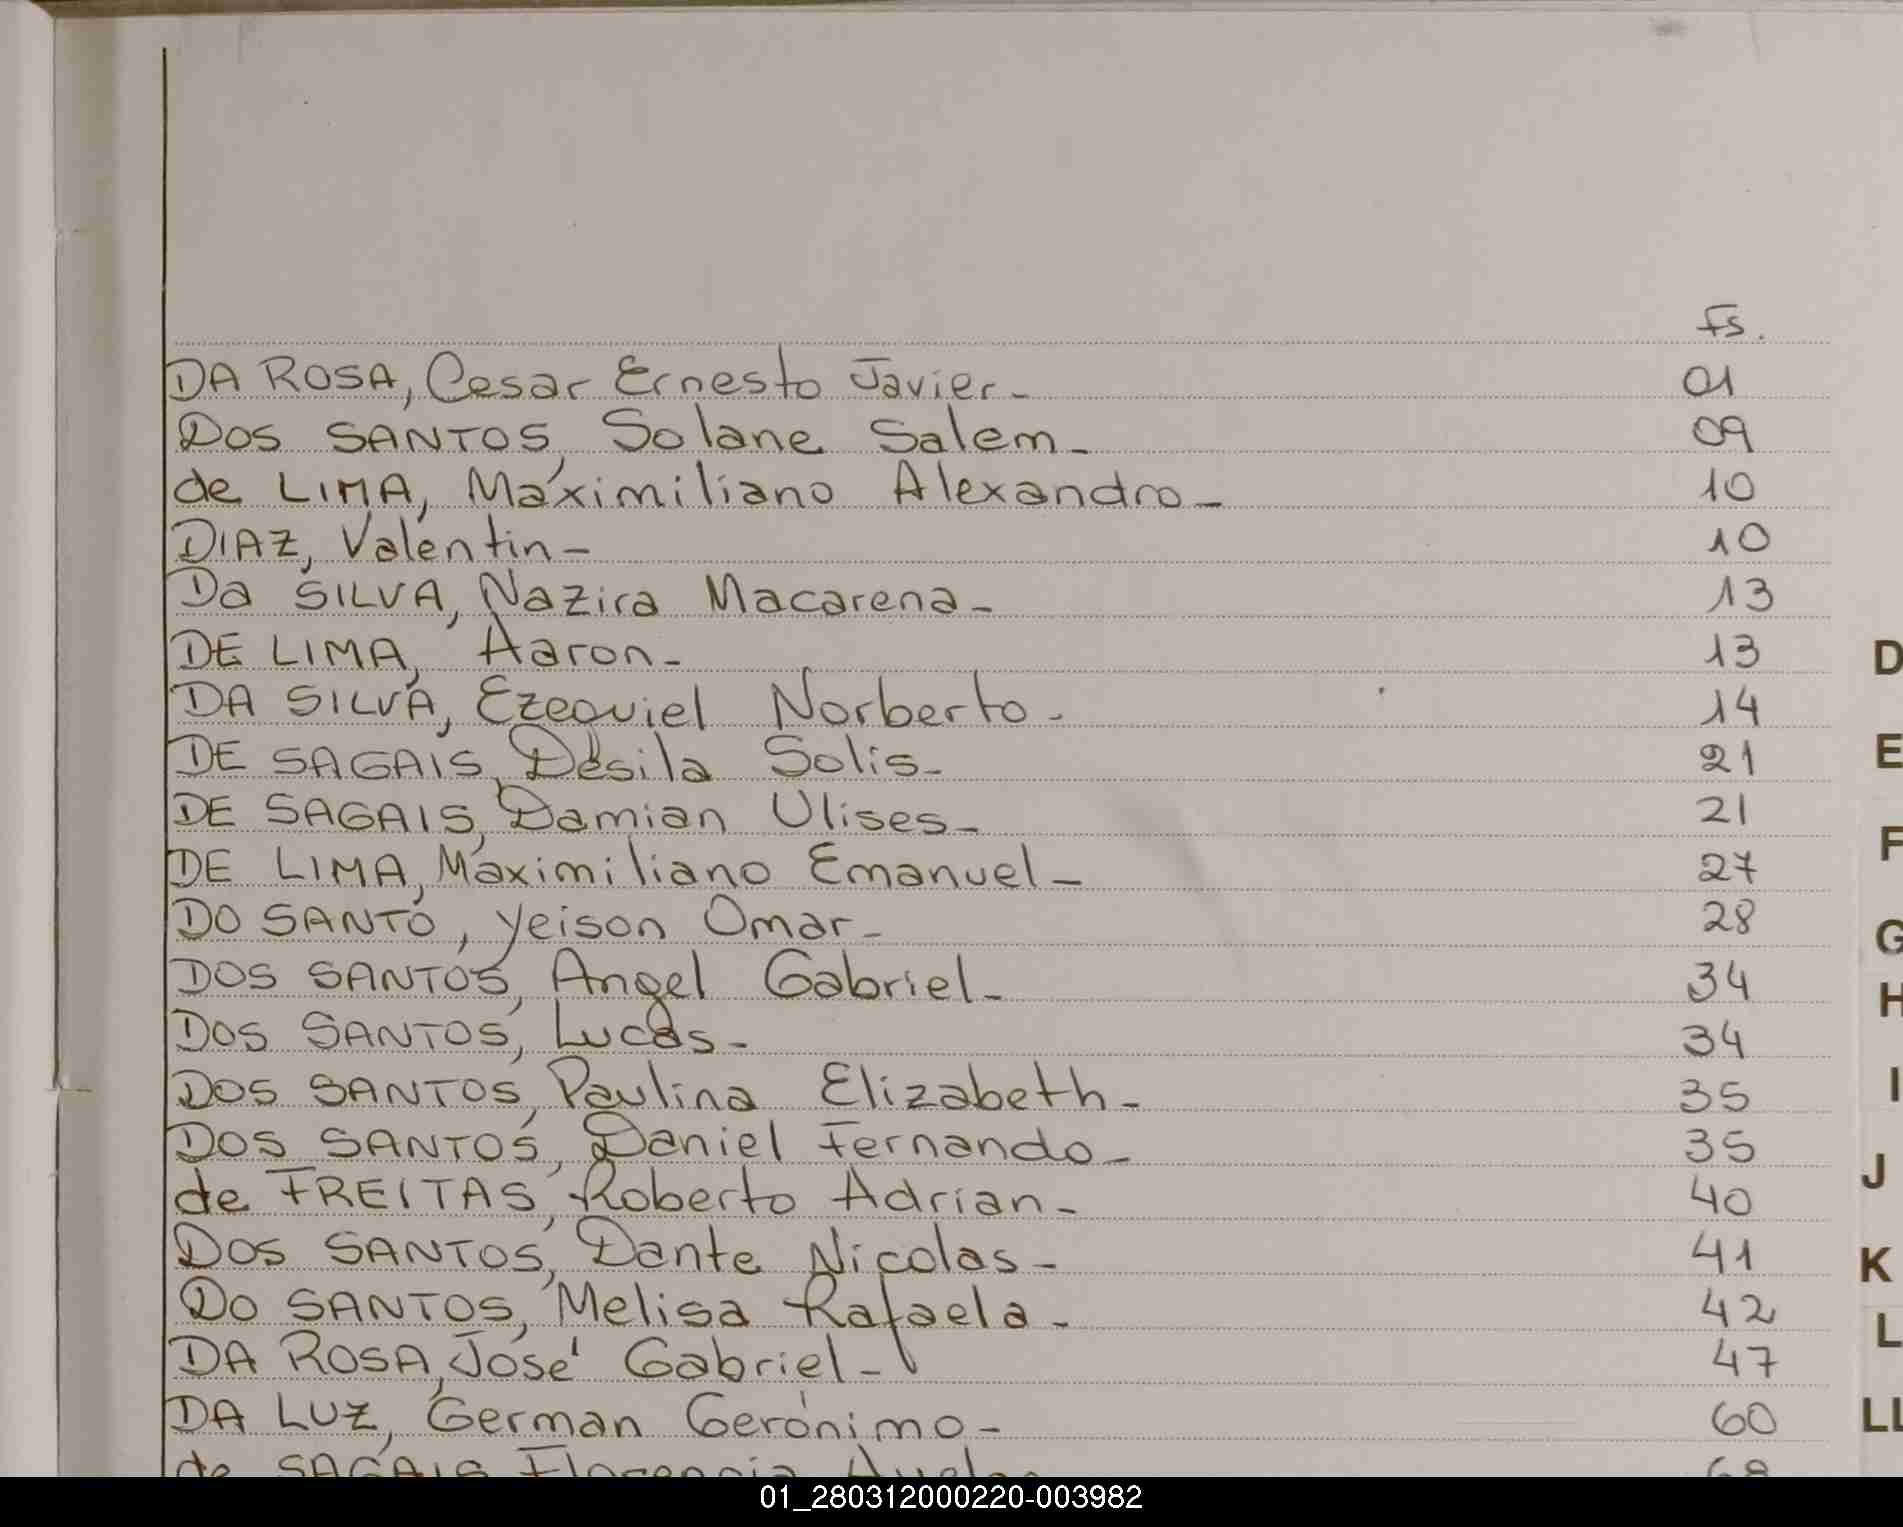 Fs.
DA ROSA, Cesar Ernesto Javier- 01
DOS SANTOS, Solane Salem- 09
de LIMA, Maximiliano Alexandro- 10
DIAZ, Valentin- 10
Da SILVA, Nazira Macarena- 13
DE LIMA, Aaron- 13
D
DA SILVA, Ezequiel Norberto- 14
DE SAGAIS, Désila Solis- 21
E
DE SAGAIS, Damian Ulises- 21
F
DE LIMA, Maximiliano Emanuel- 27
DO SANTO, Yeison Omar- 28
G
DOS SANTOS, Angel Gabriel- 34
H
DOS SANTOS, Lucas- 34
DOS SANTOS, Paulina Elizabeth- 35
I
DOS SANTOS, Daniel Fernando- 35
J
de FREITAS, Roberto Adrian- 40
DOS SANTOS, Dante Nicolas- 41
K
DO SANTOS, Melisa Rafaela- 42
L
DA ROSA, José Gabriel- 47
DA LUZ, German Gerónimo- 60
LL
de SAGAIS Florencia
01_280312000220-003982